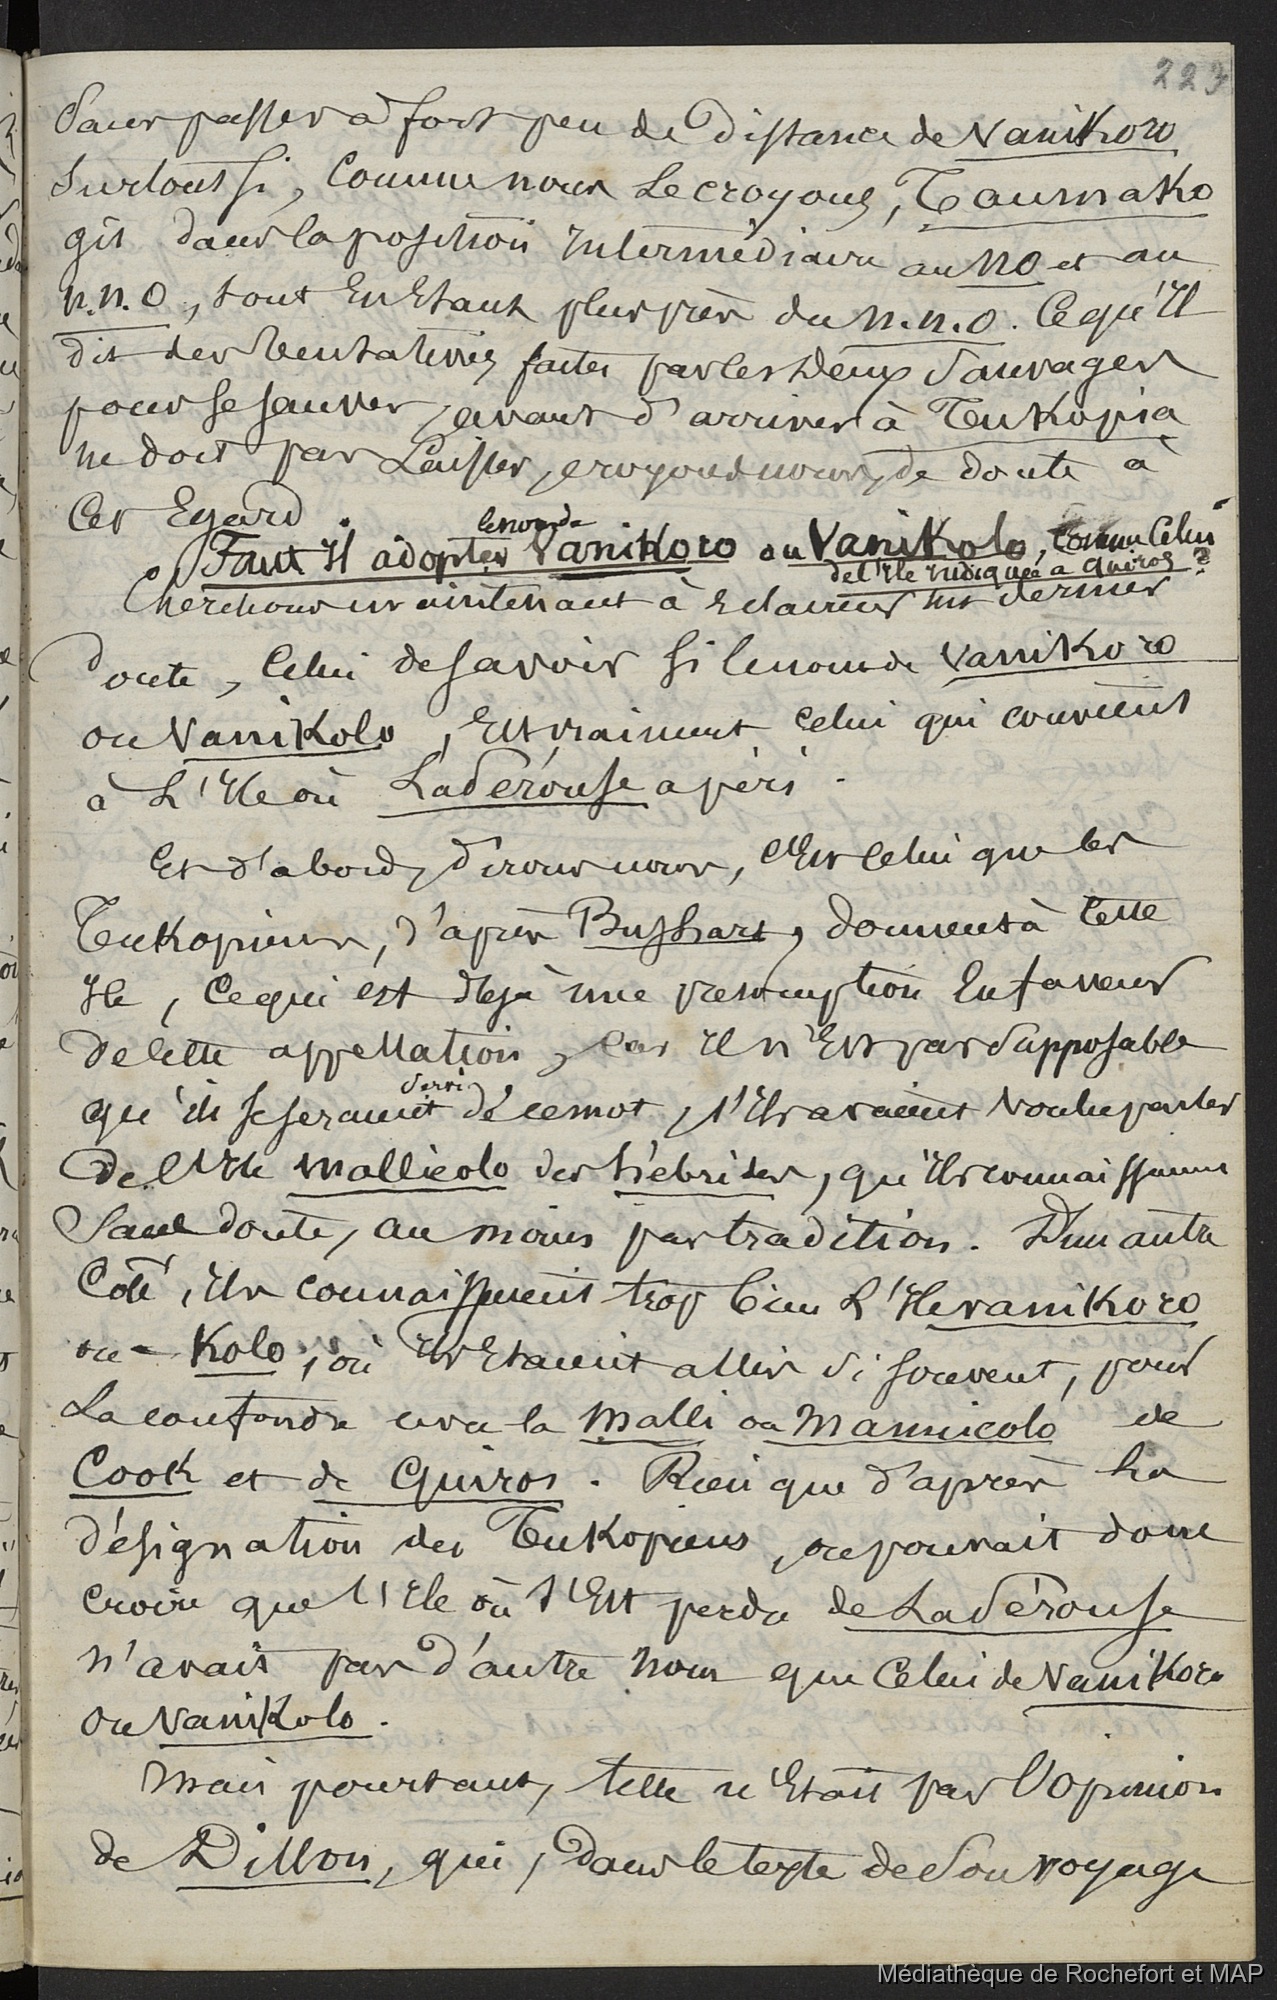 223
Sans passer à fort peu de distance de Vanikoro
surtout si, comme nous le croyons, Taumako
gît dans la position intermédiaire au NO et au
N.N.O, tout en étant plus près du N.N.O. Ce qu'il
dit des tentatives faites par les deux sauvages
pour se sauver, avant d'arriver à Tukopia
ne doit pas laisser, croyons nous, de doute à
cet égard.
Faut il adopter le nom de Vanikoro ou Vanikolo, comme celui
de l'île indiquée à Quiros ?
Cherchons maintenant à éclaircir un dernier
doute, celui de savoir si le nom de Vanikoro
ou Vanikolo, est vraiment celui qui convient
à l'île où LaPérouse a péri.
Et d'abord, dirons nous, c'est celui que les
Tukopiens, d'après Bushart, donnent à cette
île, ce qui est déjà une présomption en faveur
de cette appellation, car il n'est pas supposable
qu'ils se seraient servi de ce mot, s'ils avaient voulu parler
de l'île Mallicolo des Hébrides, qu'ils connaissaient
sans doute, au moins par tradition. D'un autre
côté, ils connaissaient trop bien l'île Vanikoro
ou - Kolo, où ils étaient allés si souvent, pour
la confondre avec la Malli ou Mannicolo de
Cook et de Quiros. Rien que d'après la
désignation des Tukopiens, on pouvait donc
croire que l'île où s'est perdu de LaPérouse
n'avait pas d'autre nom que celui de Vanikoro
ou Vanikolo.
Mais pourtant, telle n'était pas l'opinion
de Dillon, qui, dans le texte de son voyage
Médiathèque de Rochefort et MAP